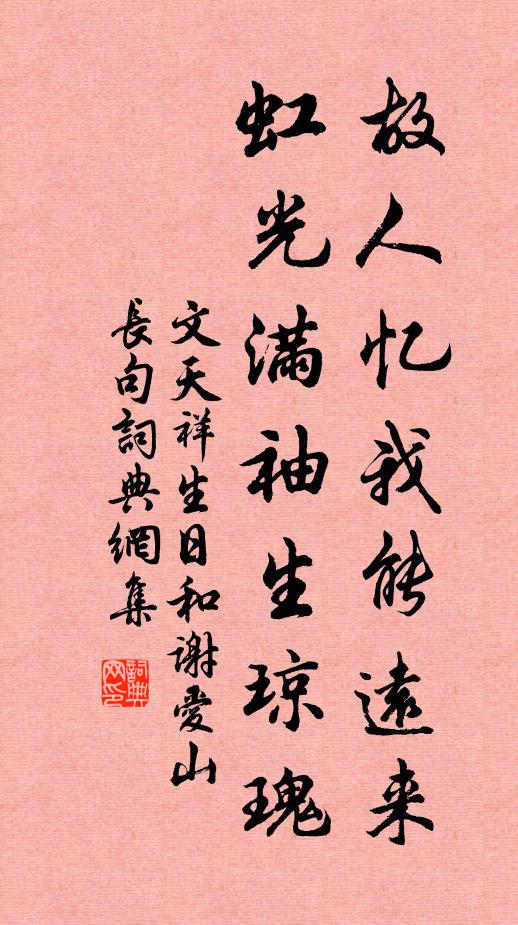 故人忆我能遠来
虹光满袖生琼瑰
文天祥生日和谢爱山
長句詞典網集
詞典网印